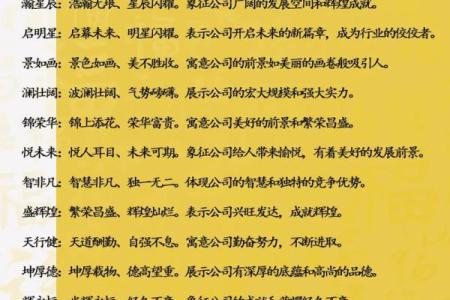 瀚星辰：浩瀚无垠、星辰闪耀。象征公司广阔的发展空间和辉煌成就。
启明星：启幕未来、明星闪耀。表示公司开启未来的新篇章，成为行业的佼佼者。
景如画：景色如画、美不胜收。寓意公司的前景如美丽的画卷般吸引人。
澜壮阔：波澜壮阔、气势磅礴。展示公司的宏大规模和强大实力。
锦荣华：锦上添花、荣华富贵。寓意公司美好的前景和繁荣昌盛。
悦未来：悦人耳目、未来可期。象征公司给人带来愉悦，有着美好的发展前景。
智非凡：智慧非凡、独一无二。体现公司的智慧和独特的竞争优势。
盛辉煌：繁荣昌盛、辉煌灿烂。表示公司兴旺发达，成就辉煌。
天行健：天道酬勤、自强不息。寓意公司勤奋努力，不断进取。
坤厚德：坤厚载物、德高望重。展示公司有深厚的底蕴和高尚的品德。